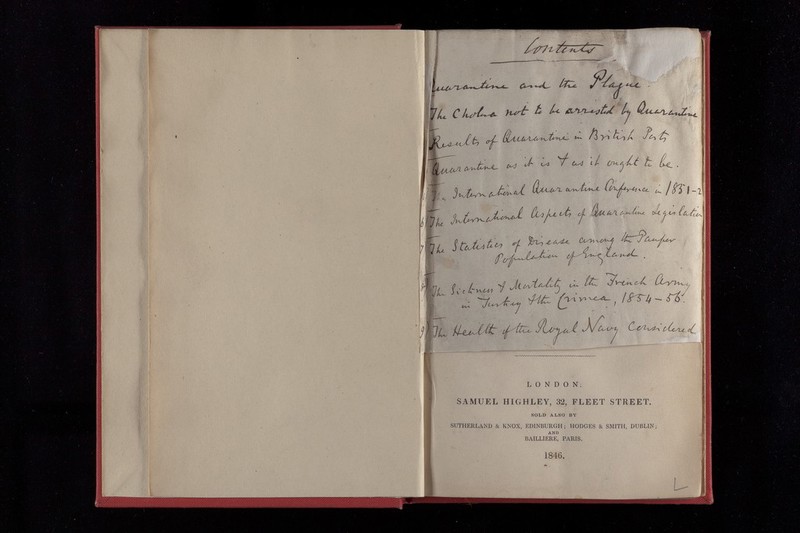 Contents
Quarantine and the Plague.
The Cholera not to be arrested by Quarantine
Results of Quarantine in British Ports
Quarantine as it is & as it ought to be.
The International Quarantine Conference in 1851-2
6 The International Aspects of Quarantine Legislation
7 The Statistics of Disease among the Pauper
Population of England.
8 The Sickness & Mortality in the French Army
in Turkey & the Crimea, 1854-56
9 The Health of the Royal Navy Considered
LONDON:
SAMUEL HIGHLEY, 32, FLEET STREET.
SOLD ALSO BY
SUTHERLAND & KNOX, EDINBURGH; HODGES & SMITH, DUBLIN;
AND
BAILLIERE, PARIS.
1846.
L